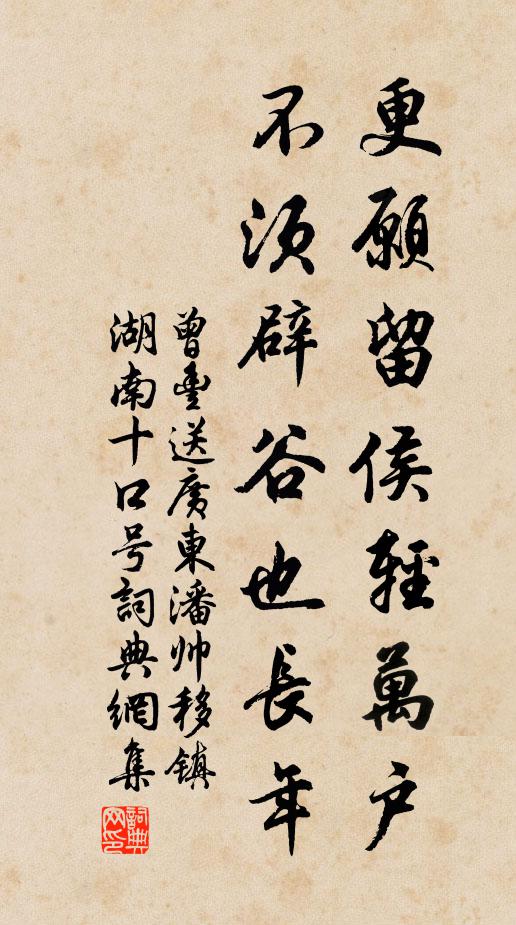 更願留侯輕萬戶
不須辟谷也長年
曾豐送廣東潘帅移镇
湖南十口号詞典網集
詞典网印